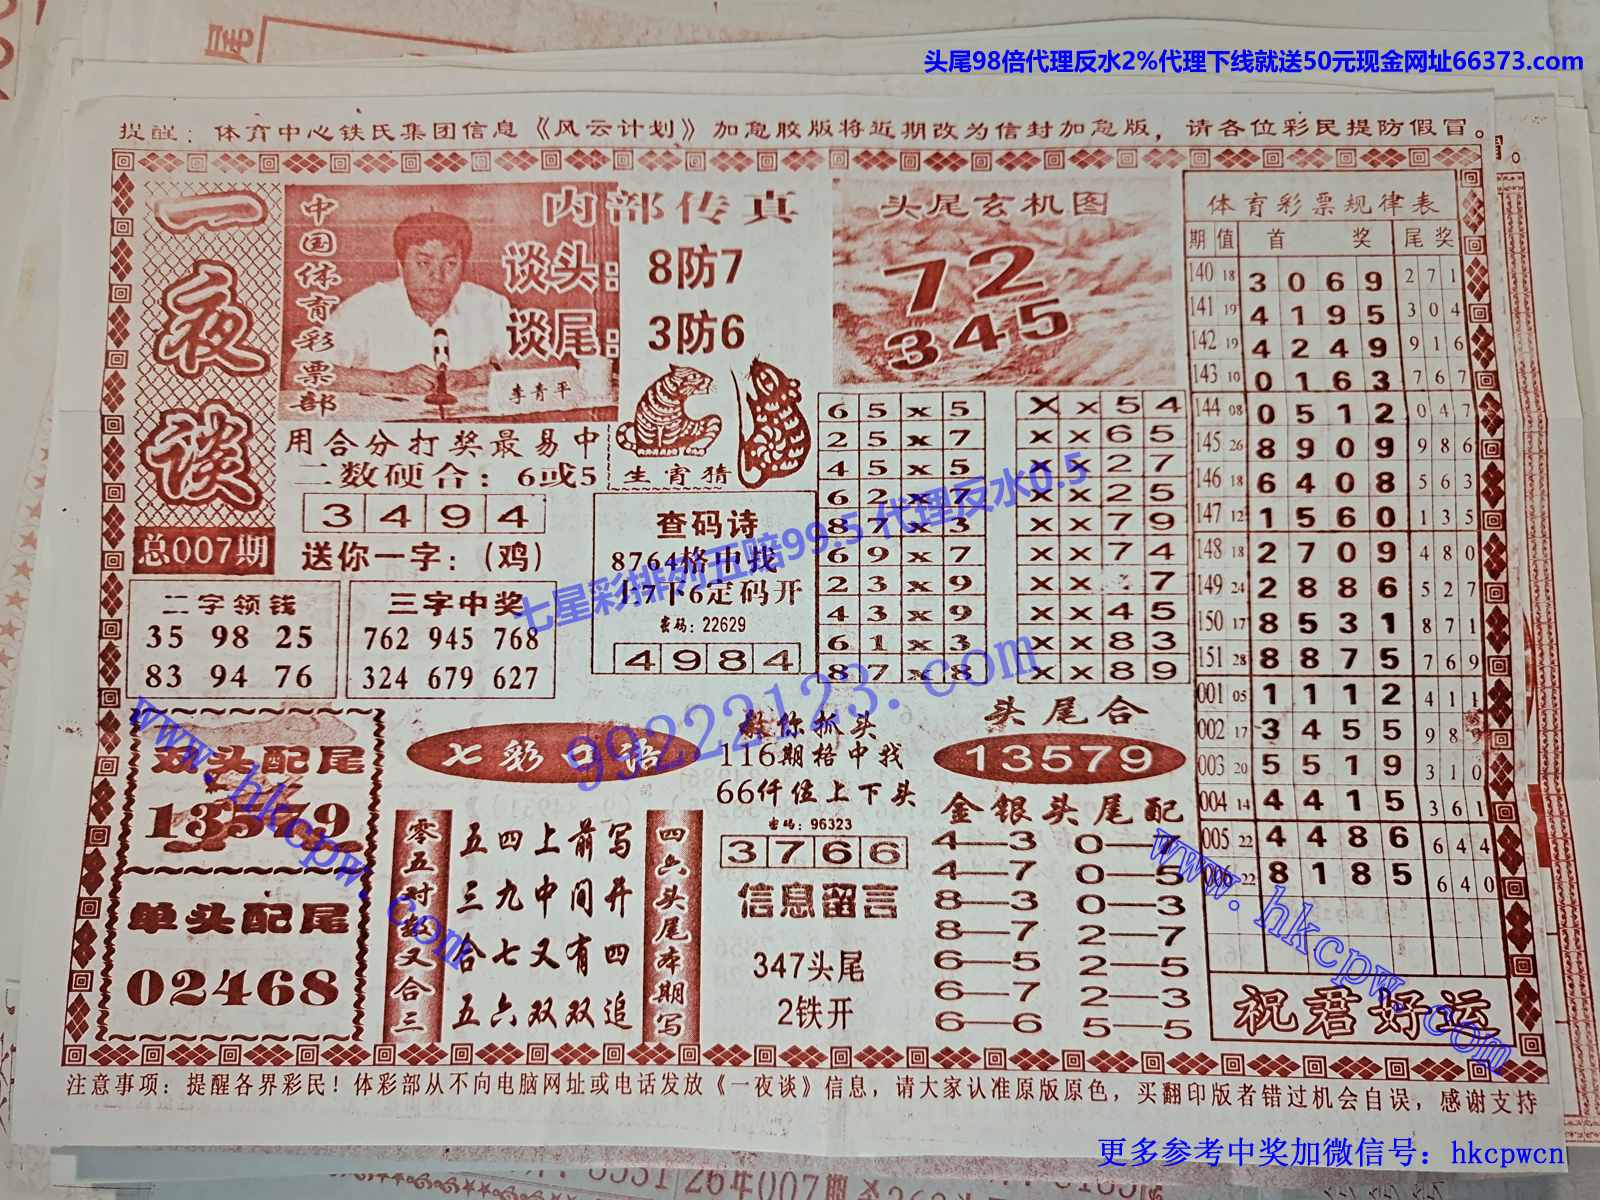 头尾98倍代理反水2%代理下线就送50元现金网址66373.com
提醒：体育中心铁氏集团信息《风云计划》加急胶版将近期改为信封加急版，请各位彩民提防假冒。
一夜谈
总007期
中国体育彩票部
内部传真
谈头：8防7
谈尾：3防6
李青平
用合分打奖最易中
二数硬合：6或5
3 4 9 4
送你一字：（鸡）
生宵猜
头尾玄机图
72
345
二字领钱
35 98 25
83 94 76
三字中奖
762 945 768
324 679 627
查码诗
8764格中找
上7下6定码开
密码：22629
4 9 8 4
6 5 x 5
2 5 x 7
4 5 x 5
6 2 x 7
8 7 x 3
6 9 x 7
2 3 x 9
4 3 x 9
6 1 x 3
8 7 x 8
X x 5 4
x x 6 5
x x 2 7
x x 2 5
x x 7 9
x x 7 4
x x 7
x x 4 5
x x 8 3
x x 8 9
体育彩票规律表
期 值 首 奖 尾 奖
140 18 3 0 6 9 2 7 1
141 19 4 1 9 5 3 0 4
142 19 4 2 4 9 9 1 6
143 10 0 1 6 3 7 6 7
144 08 0 5 1 2 0 4 7
145 26 8 9 0 9 9 8 6
146 18 6 4 0 8 5 6 3
147 12 1 5 6 0 1 3 5
148 18 2 7 0 9 4 8 0
149 24 2 8 8 6 5 2 7
150 17 8 5 3 1 8 7 1
151 28 8 8 7 5 7 6 9
001 05 1 1 1 2 4 1 1
002 17 3 4 5 5 9 8
003 20 5 5 1 9 3 1 0
004 14 4 4 1 5 3 6 1
005 22 4 4 8 6 6 4 4
006 22 8 1 8 5 6 4 0
祝君好运
双头配尾
13579
单头配尾
02468
七彩口语
零五对数又合三
五四上前写
三九中间开
合七又有四
五六双双追
四六头尾本期写
教你抓头
116期格中找
66仟位上下头
密码：96323
3 7 6 6
信息留言
347头尾
2铁开
头尾合
13579
金银头尾配
4—3 0—7
4—7 0—5
8—3 0—3
8—7 2—7
6—5 2—5
6—7 2—3
6—6 5—5
注意事项：提醒各界彩民！体彩部从不向电脑网址或电话发放《一夜谈》信息，请大家认准原版原色，买翻印版者错过机会自误，感谢支持
七星彩排列五赔99.5 代理反水0.5
99222123.com
www.hkcpw.com
www.hkcpw.com
更多参考中奖加微信号：hkcpwcn